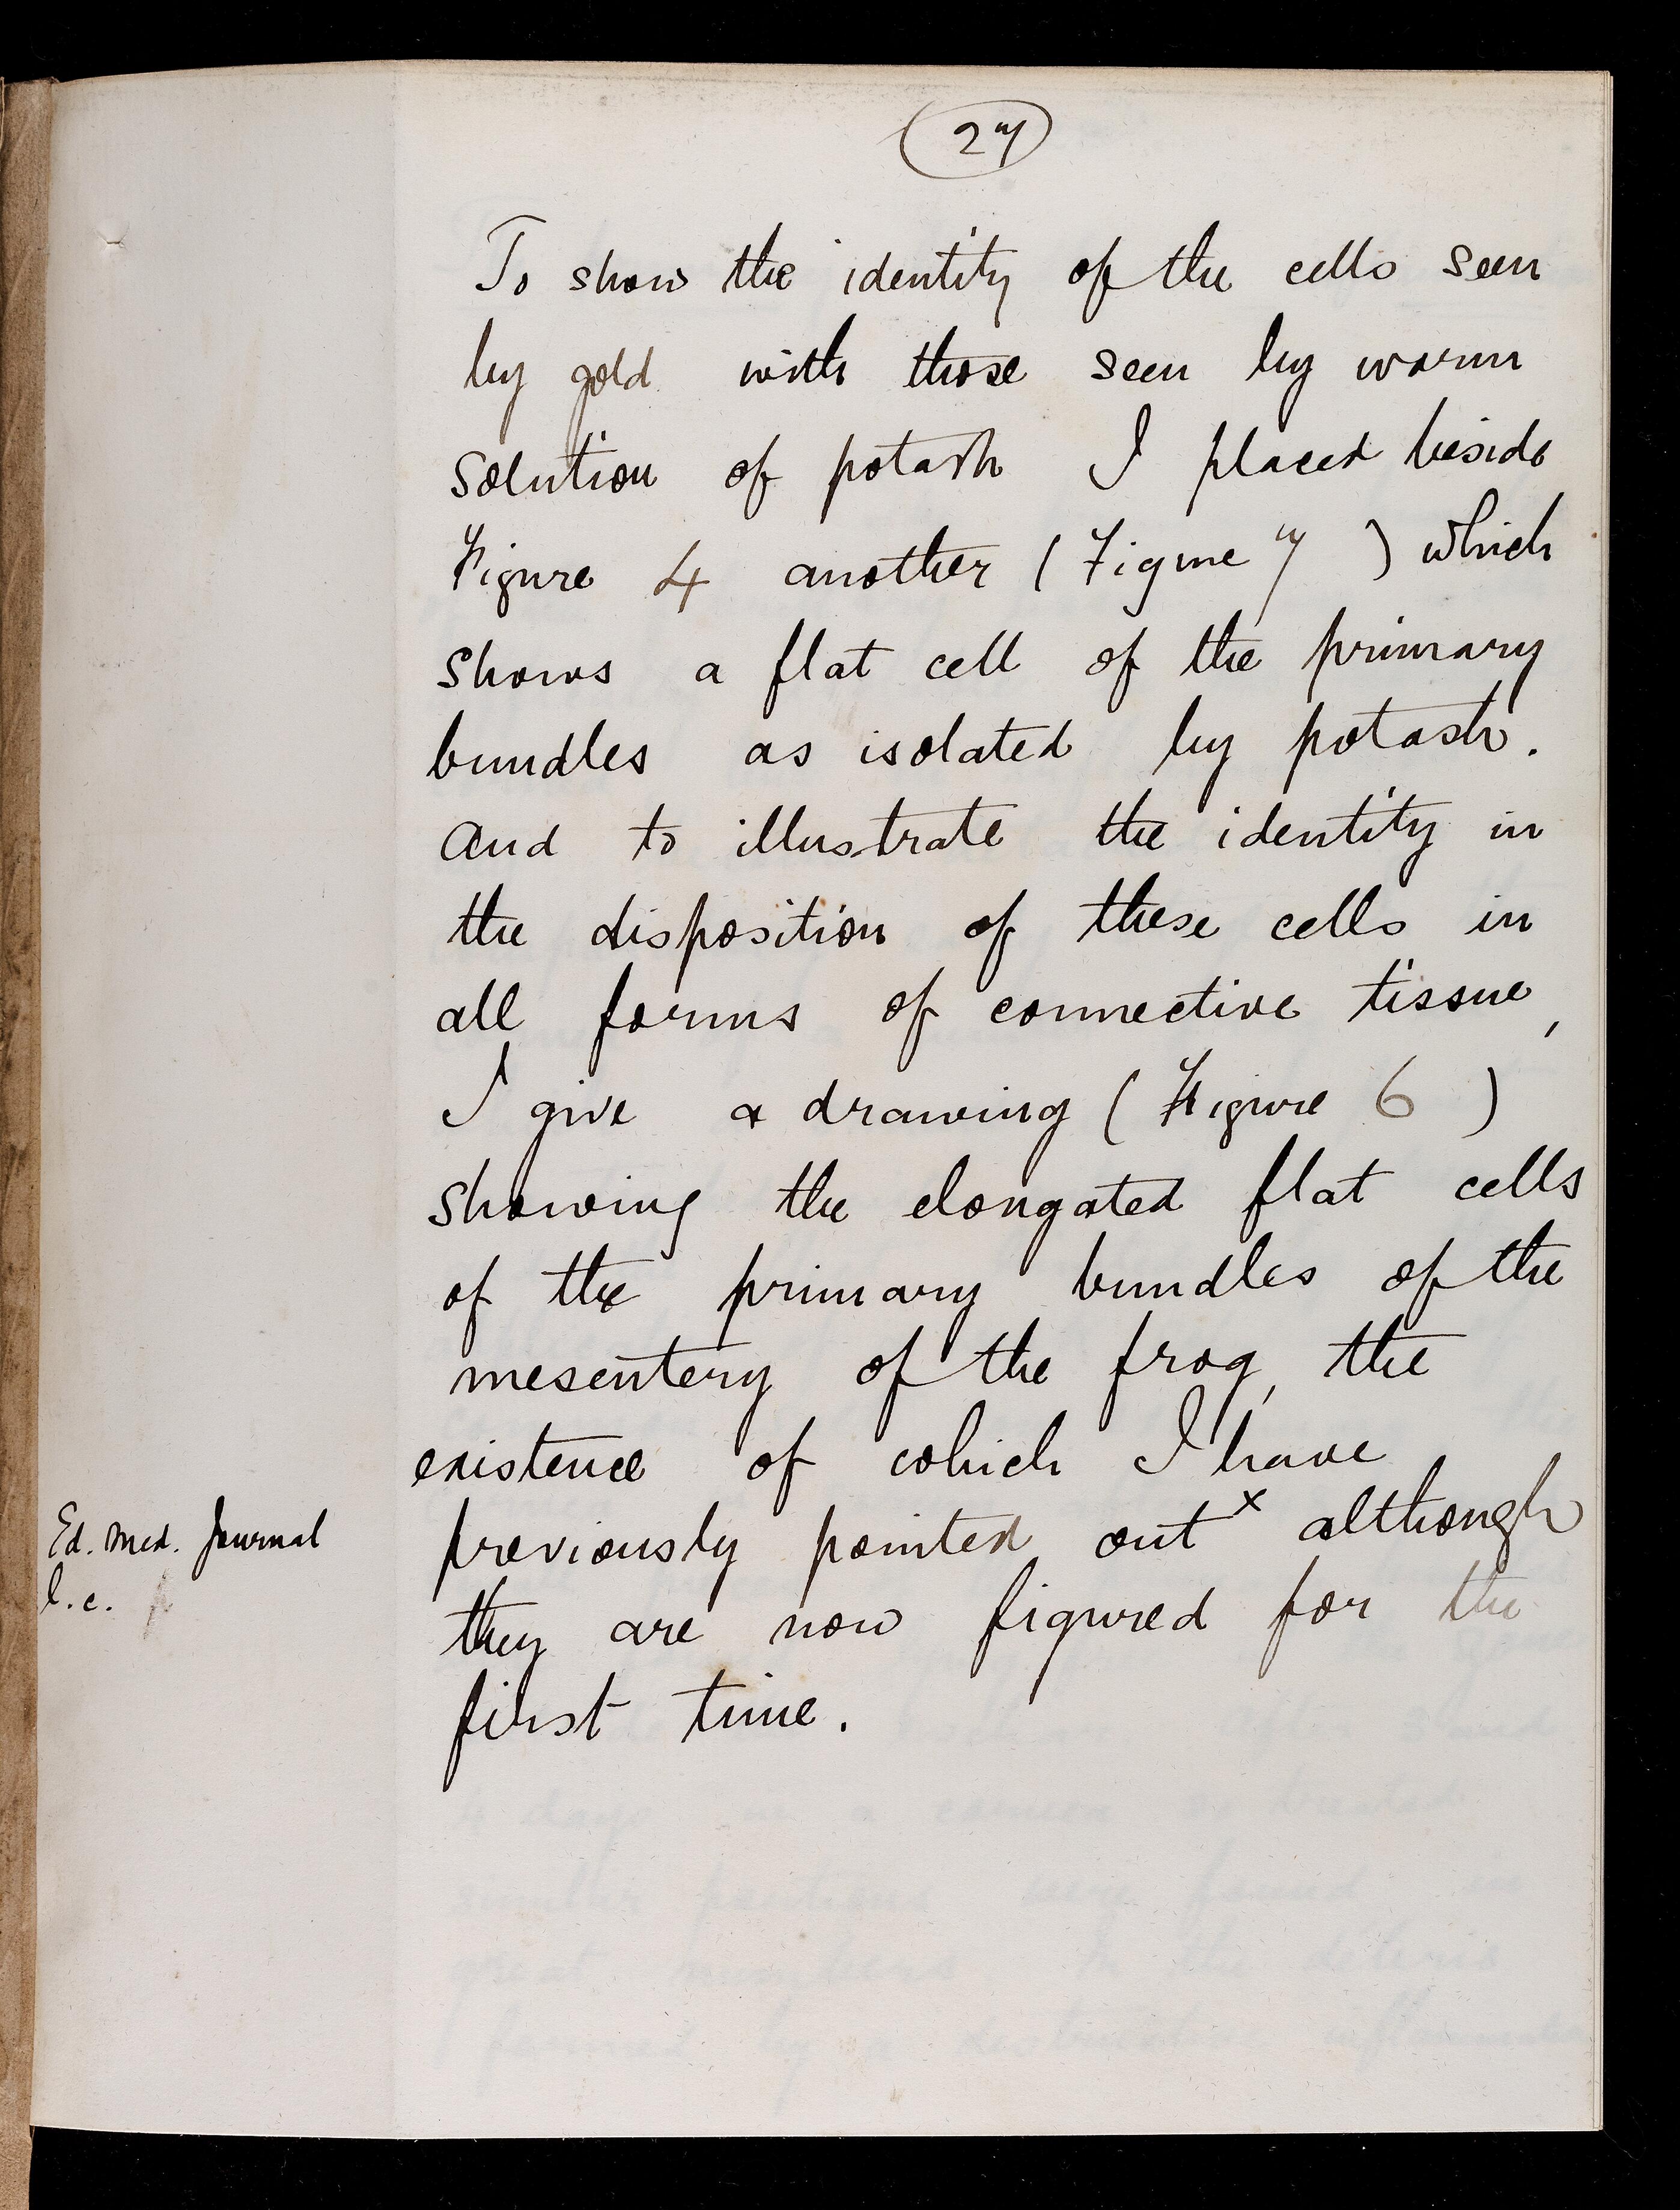 27
To show the identity of the cells seen
by gold with those seen by warm
solution of potash I placed beside
Figure 4 another (Figure 7) which
shows a flat cell of the primary
bundles as isolated by potash.
And to illustrate the identity in
the disposition of these cells in
all forms of connective tissue,
I give a drawing (Figure 6)
showing the elongated flat cells
of the primary bundles of the
mesentery of the frog, the
existence of which I have
previously pointed out x although
they are now figured for the
first time.
Ed. Med. Journal
l.c.